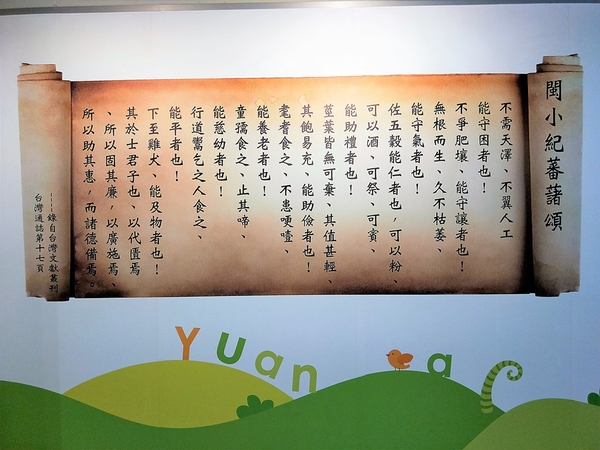 閩小紀蕃藷頌
不需天澤、不翼人工
能守困者也！
不爭肥壤、能守讓者也！
無根而生、久不枯萎、
能守氣者也！
佐五穀能仁者也，可以粉、
可以酒、可祭、可賓、
能助禮者也！
莖葉皆無可棄、其值甚輕、
其飽易充、能助儉者也！
耄耆食之、不患哽噎、
能養老者也！
童孺食之、止其啼、
能慈幼者也！
行道鬻乞之人食之、
能平者也！
下至雞犬、能及物者也！
其於士君子也、以代匱焉
、所以固其廉，以廣施焉、
所以助其惠，而諸德備焉。
----錄自台灣文獻叢刊
台灣通誌第十七頁
Yuan a